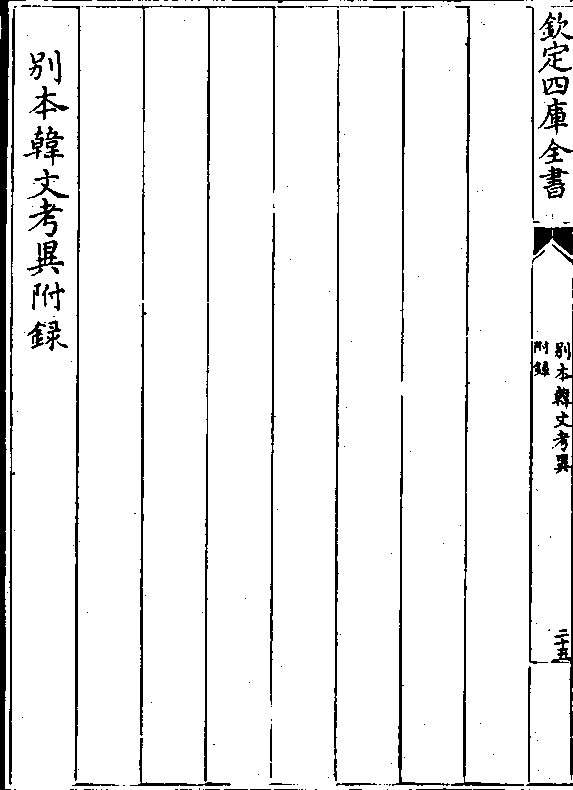 欽定四庫全書
別本韓文考異
附錄
二十五
別本韓文考異附録